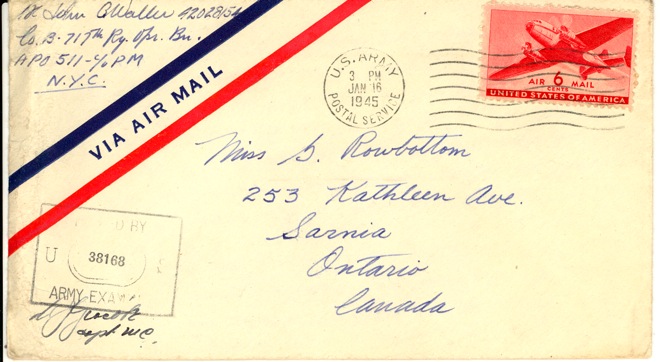 John C Waller 42028154
Co. B. 71th Ry. Opr. Bn.
APO 511 - c/o PM
N.Y.C.
VIA AIR MAIL
U.S. ARMY
3 PM
JAN 16
1945
POSTAL SERVICE
AIR 6 MAIL
CENTS
UNITED STATES OF AMERICA
Miss G. Rowbottom
253 Kathleen Ave.
Sarnia
Ontario
Canada
BY
U 38168 S
ARMY EXAM
Capt MC